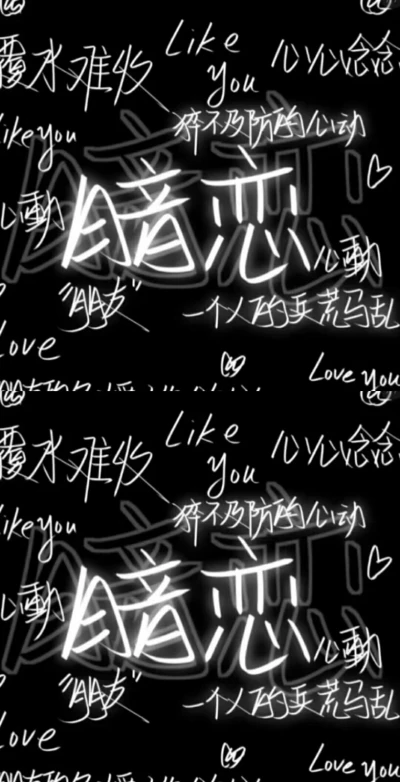 Like
覆水难收
you
心心念念
Like you
猝不及防的心动
暗恋
心動
心動
"朋友"
一个人的兵荒马乱
Love
Love you
Like
覆水难收
you
心心念念
Like you
猝不及防的心动
暗恋
心動
心動
"朋友"
一个人的兵荒马乱
Love
Love you